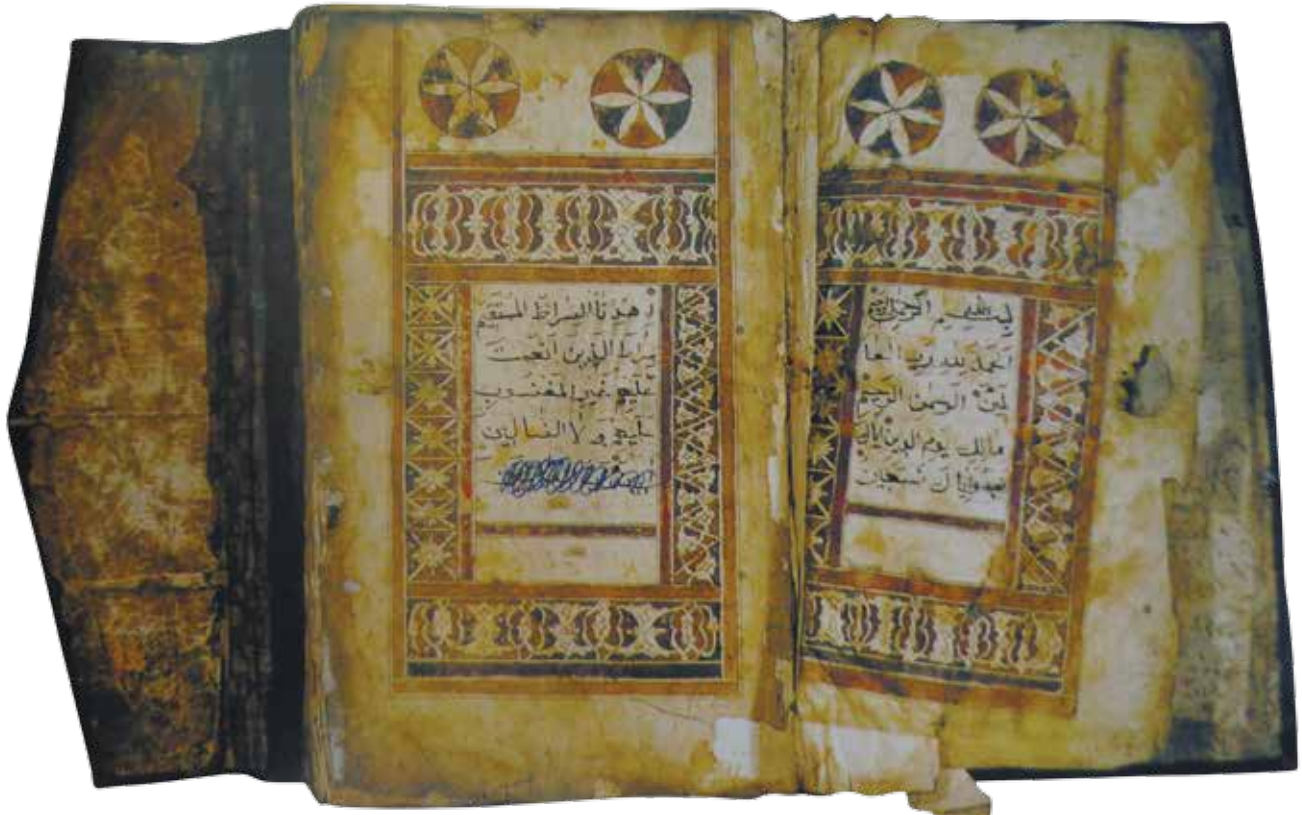 بسم الله الرحمن الرحيم
الحمد لله رب العا
لمين الرحمن الرحيم
مالك يوم الدين اياك
نعبد واياك نستعين
اهدنا السراط المستقيم
سراط الذين انعمت
عليهم غير المغضوب
عليهم ولا الضالين